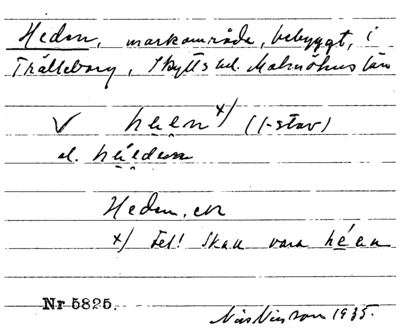 Heden, markområde, bebyggt, i
Trälleborg, Skytts hd. Malmöhus län
V heen x) (1-stav)
el. héeden
Heden, en
x) Fel! Skall vara héen
Nr 5825.
Nils Nilsson 1935.